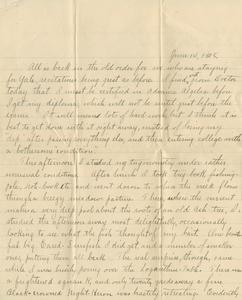 June 14, 19
All is back in the old order for me who am staying
for Yale, recitations being just as before. I find from Doctor
today that I must be certified in Advance Algebra before
I get any diploma, which will not be until just before the
exams. It will mean lots of hard work but I think it is
best to get home with it right away, instead of being
did after passing everything else, and then entering college with
a bothersome condition.
This afternoon I studied my trigonometry under rather
unusual conditions. After lunch I took my book, fishing-
pole, note book etc and went down to where the creek flows
through a breezy meadow pasture. There, where the current
washes very deep just about the roots of an old oak tree, I
studied the afternoon away most delightfully, occasionally
looking to see what the fish thought of my bait. One
fish big. Card. I did get and a number of smaller
ones, putting them all back. The real surprise, though, came
while I was busily poring over the Logarithm table. I heard
a frightened squawk, and only twenty yards away a fine
Black-crowned Night-Heron was hastily retreating. Evidently